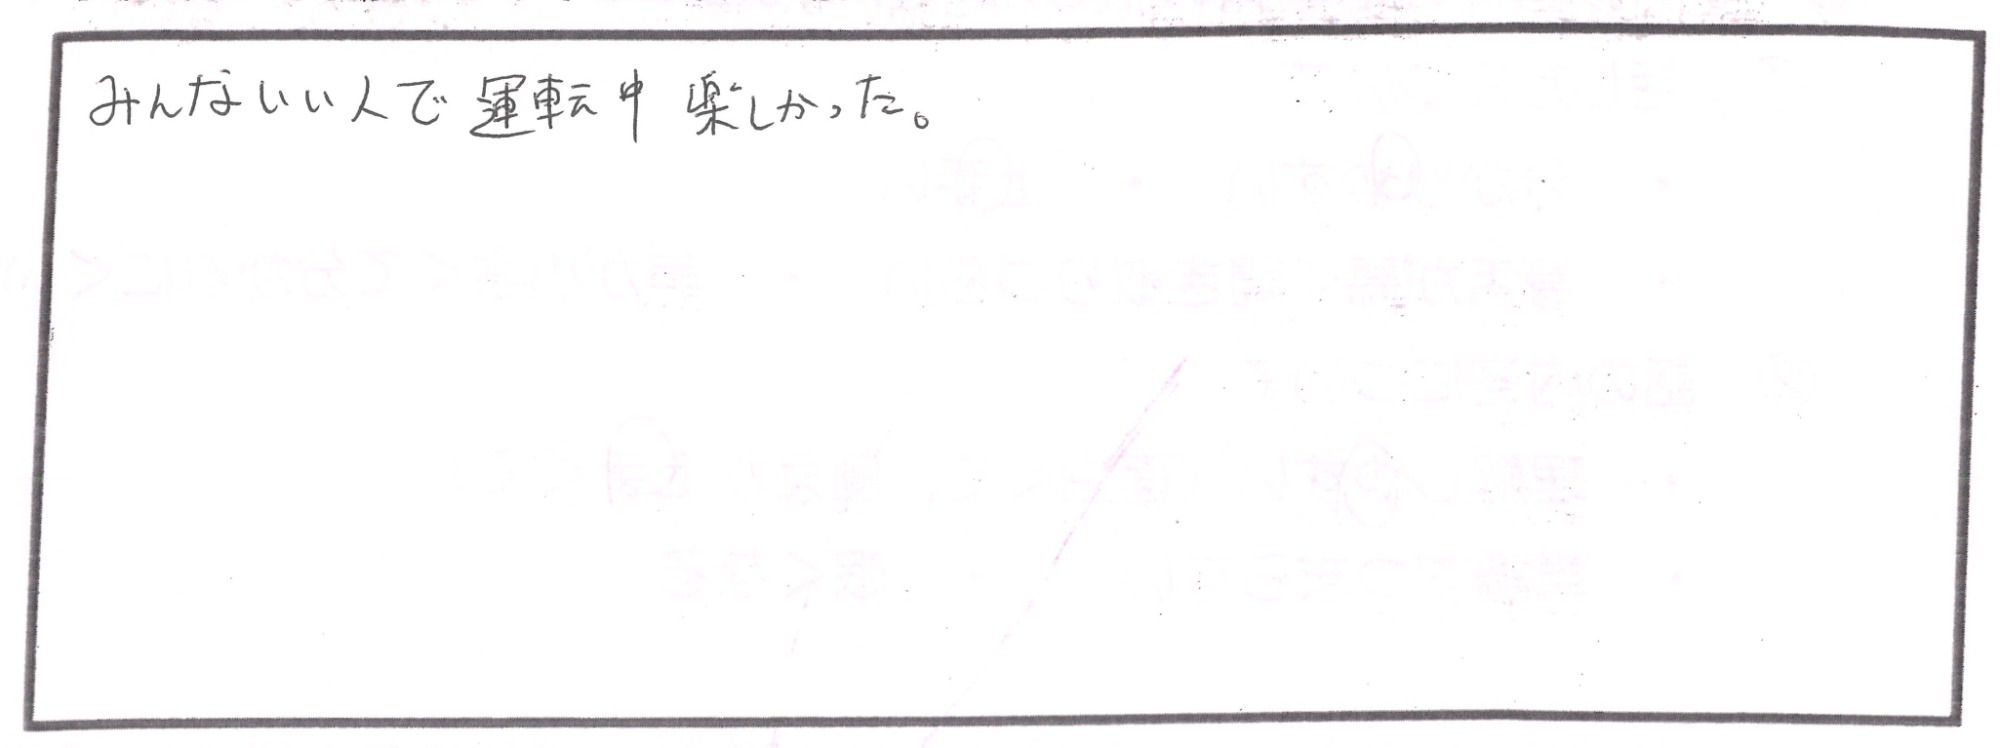 みんないい人で運転中楽しかった。